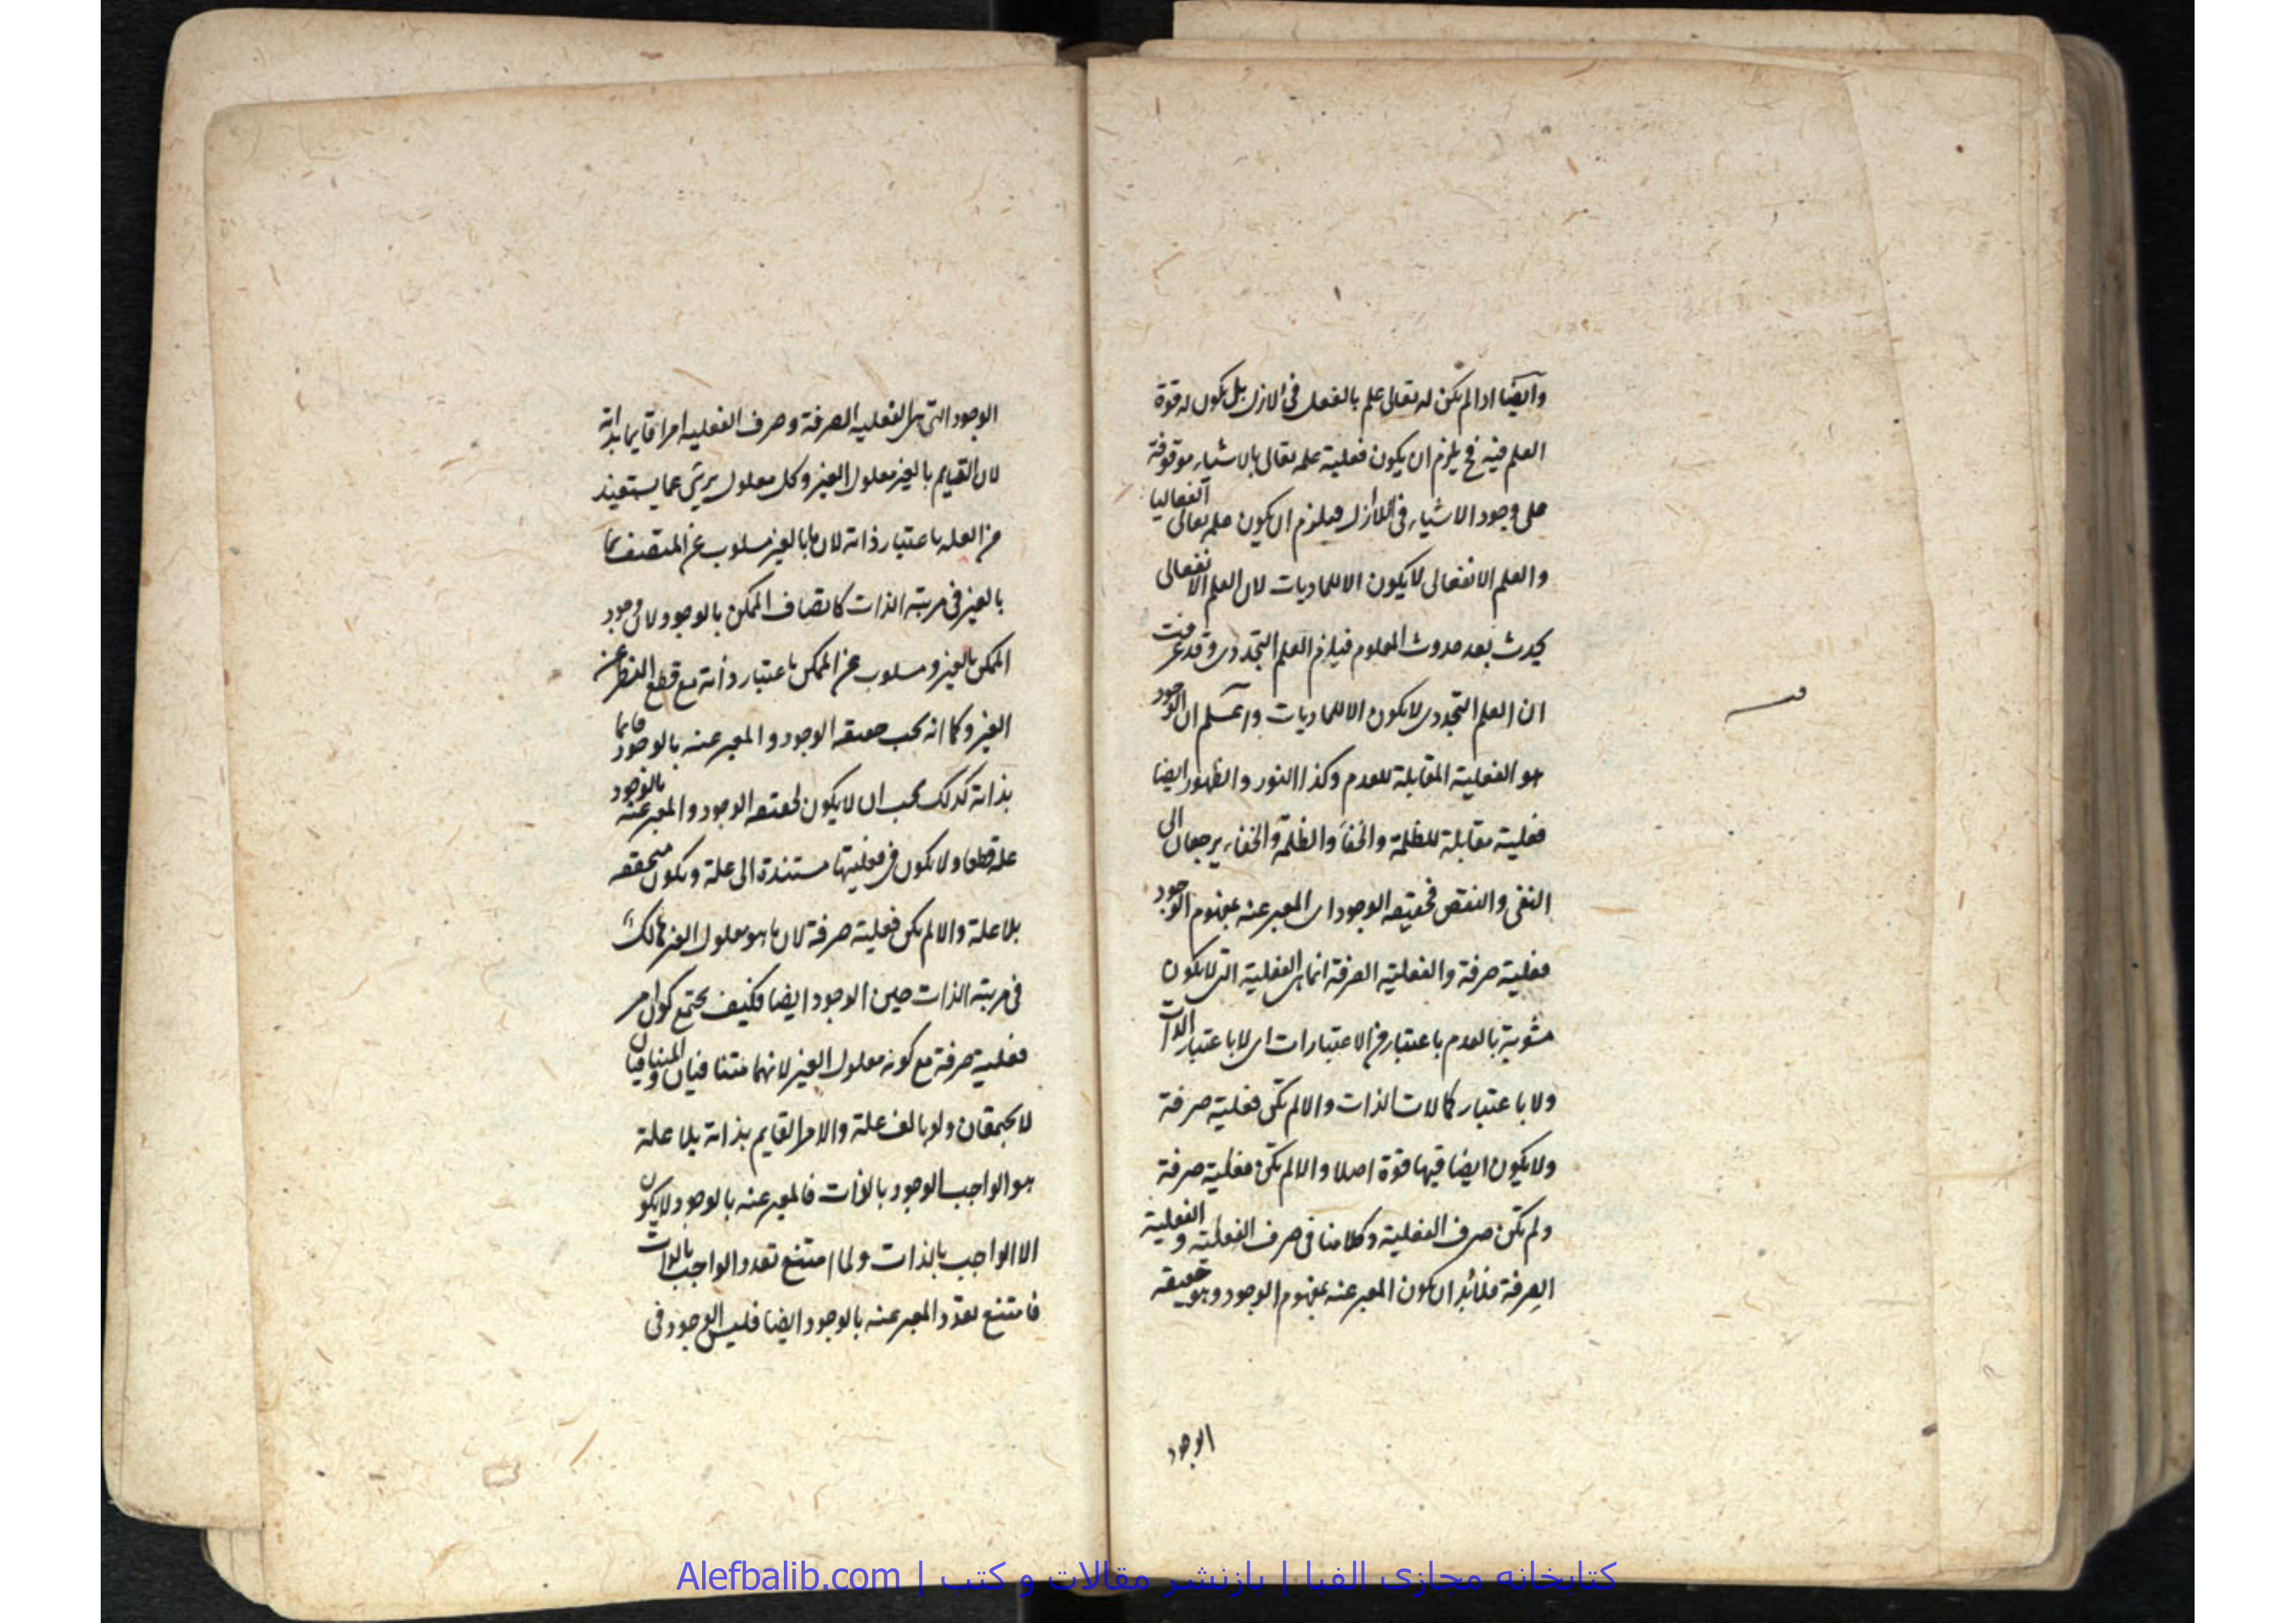 وايضا اذا لم يكن له تعالى علم بالفعل في الازل بل يكون له قوة
العلم فيه فح يلزم ان يكون فعلية علمه تعالى بالاشياء موقوفة
على وجود الاشياء في اللاازل فيلزم ان يكون علمه تعالى انفعاليا
والعلم الانفعالى لا يكون الا للماديات لان العلم الانفعالى
يحدث بعد حدوث المعلوم فيلزم العلم التجددى وقد عرفت
ان العلم التجددى لا يكون الا للماديات واعلم ان الوجود
هو الفعلية المقابلة للعدم وكذا النور والظهور ايضا
فعلية مقابلة للظلمة والخفاء والظلمة والخفاء يرجعان الى
النفى والنقص فحقيقة الوجود اى المعبر عنه بمفهوم الوجود
فعلية صرفة والفعلية الصرفة انما هى الفعلية التى لا يكون
مشوبة بالعدم باعتبار من الاعتبارات اى لا باعتبار الذات
ولا باعتبار كمالات الذات والا لم تكن فعلية صرفة
ولا يكون ايضا فيها قوة اصلا والا لم تكن فعلية صرفة
ولم تكن صرف الفعلية وكلامنا فى صرف الفعلية والفعلية
الصرفة فلابد ان يكون المعبر عنه بمفهوم الوجود وهو حقيقة
الوجود
الوجود التى هى الفعلية الصرفة وصرف الفعلية امرا قايما بذاته
لان القايم بالغير معلول الغير وكل معلول برئ عما يستفيد
من العلة باعتبار ذاته لان ما بالغير مسلوب عن المتصف بما
بالغير فى مرتبة الذات كاتصاف الممكن بالوجود لان وجود
الممكن بالغير ومسلوب عن الممكن باعتبار ذاته مع قطع النظر عن
الغير وكما انه يجب حقيقة الوجود والمعبر عنه بالوجود قايما
بذاته كذلك يجب ان لا يكون لحقيقة الوجود والمعبر عنه بالوجود
علة قطعا ولا يكون فى فعليتها مستندة الى علة ويكون متحققة
بلا علة والا لم يكن فعلية صرفة لان ما هو معلول الغير هالك
فى مرتبة الذات حين الوجود ايضا فكيف يجتمع كون امر
فعلية صرفة مع كونه معلول الغير لانهما متنافيان والمتنافيان
لا يجتمعان ولو بالف علة والامر القايم بذاته بلا علة
هو الواجب الوجود بالذات فالمعبر عنه بالوجود لا يكون
الا الواجب بالذات ولما امتنع تعدد الواجب بالذات
فامتنع تعدد المعبر عنه بالوجود ايضا فليس الوجود فى
كتابخانه مجازى الفبا | بازنشر مقالات و كتب | Alefbalib.com